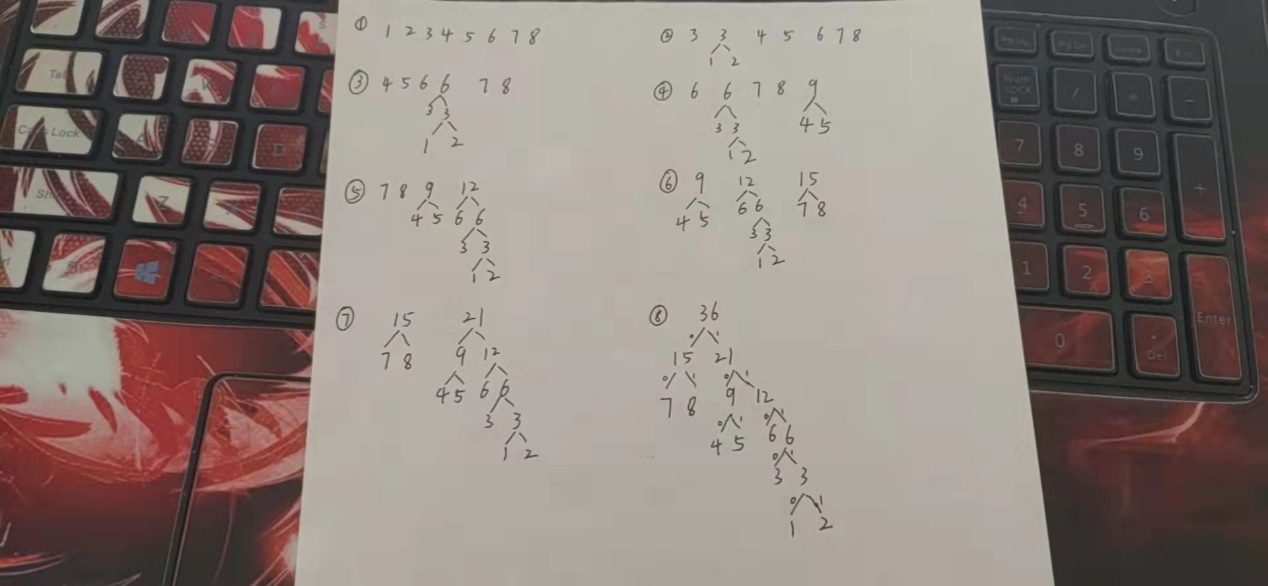 ① 1 2 3 4 5 6 7 8
② 3 3 4 5 6 7 8
1 2
③ 4 5 6 6 7 8
3 3
1 2
④ 6 6 7 8 9
3 3 4 5
1 2
⑤ 7 8 9 12
4 5 6 6
3 3
1 2
⑥ 9 12 15
4 5 6 6 7 8
3 3
1 2
⑦ 15 21
7 8 9 12
4 5 6 6
3 3
1 2
⑧ 36
0 1
15 21
0 1 0 1
7 8 9 12
0 1 0 1
4 5 6 6
0 1
3 3
0 1
1 2
Tab
Caps Lock
Z
Num
Lock
/
*
-
7 8 9
+
4 5 6
1 2 3
Enter
0
.
Del